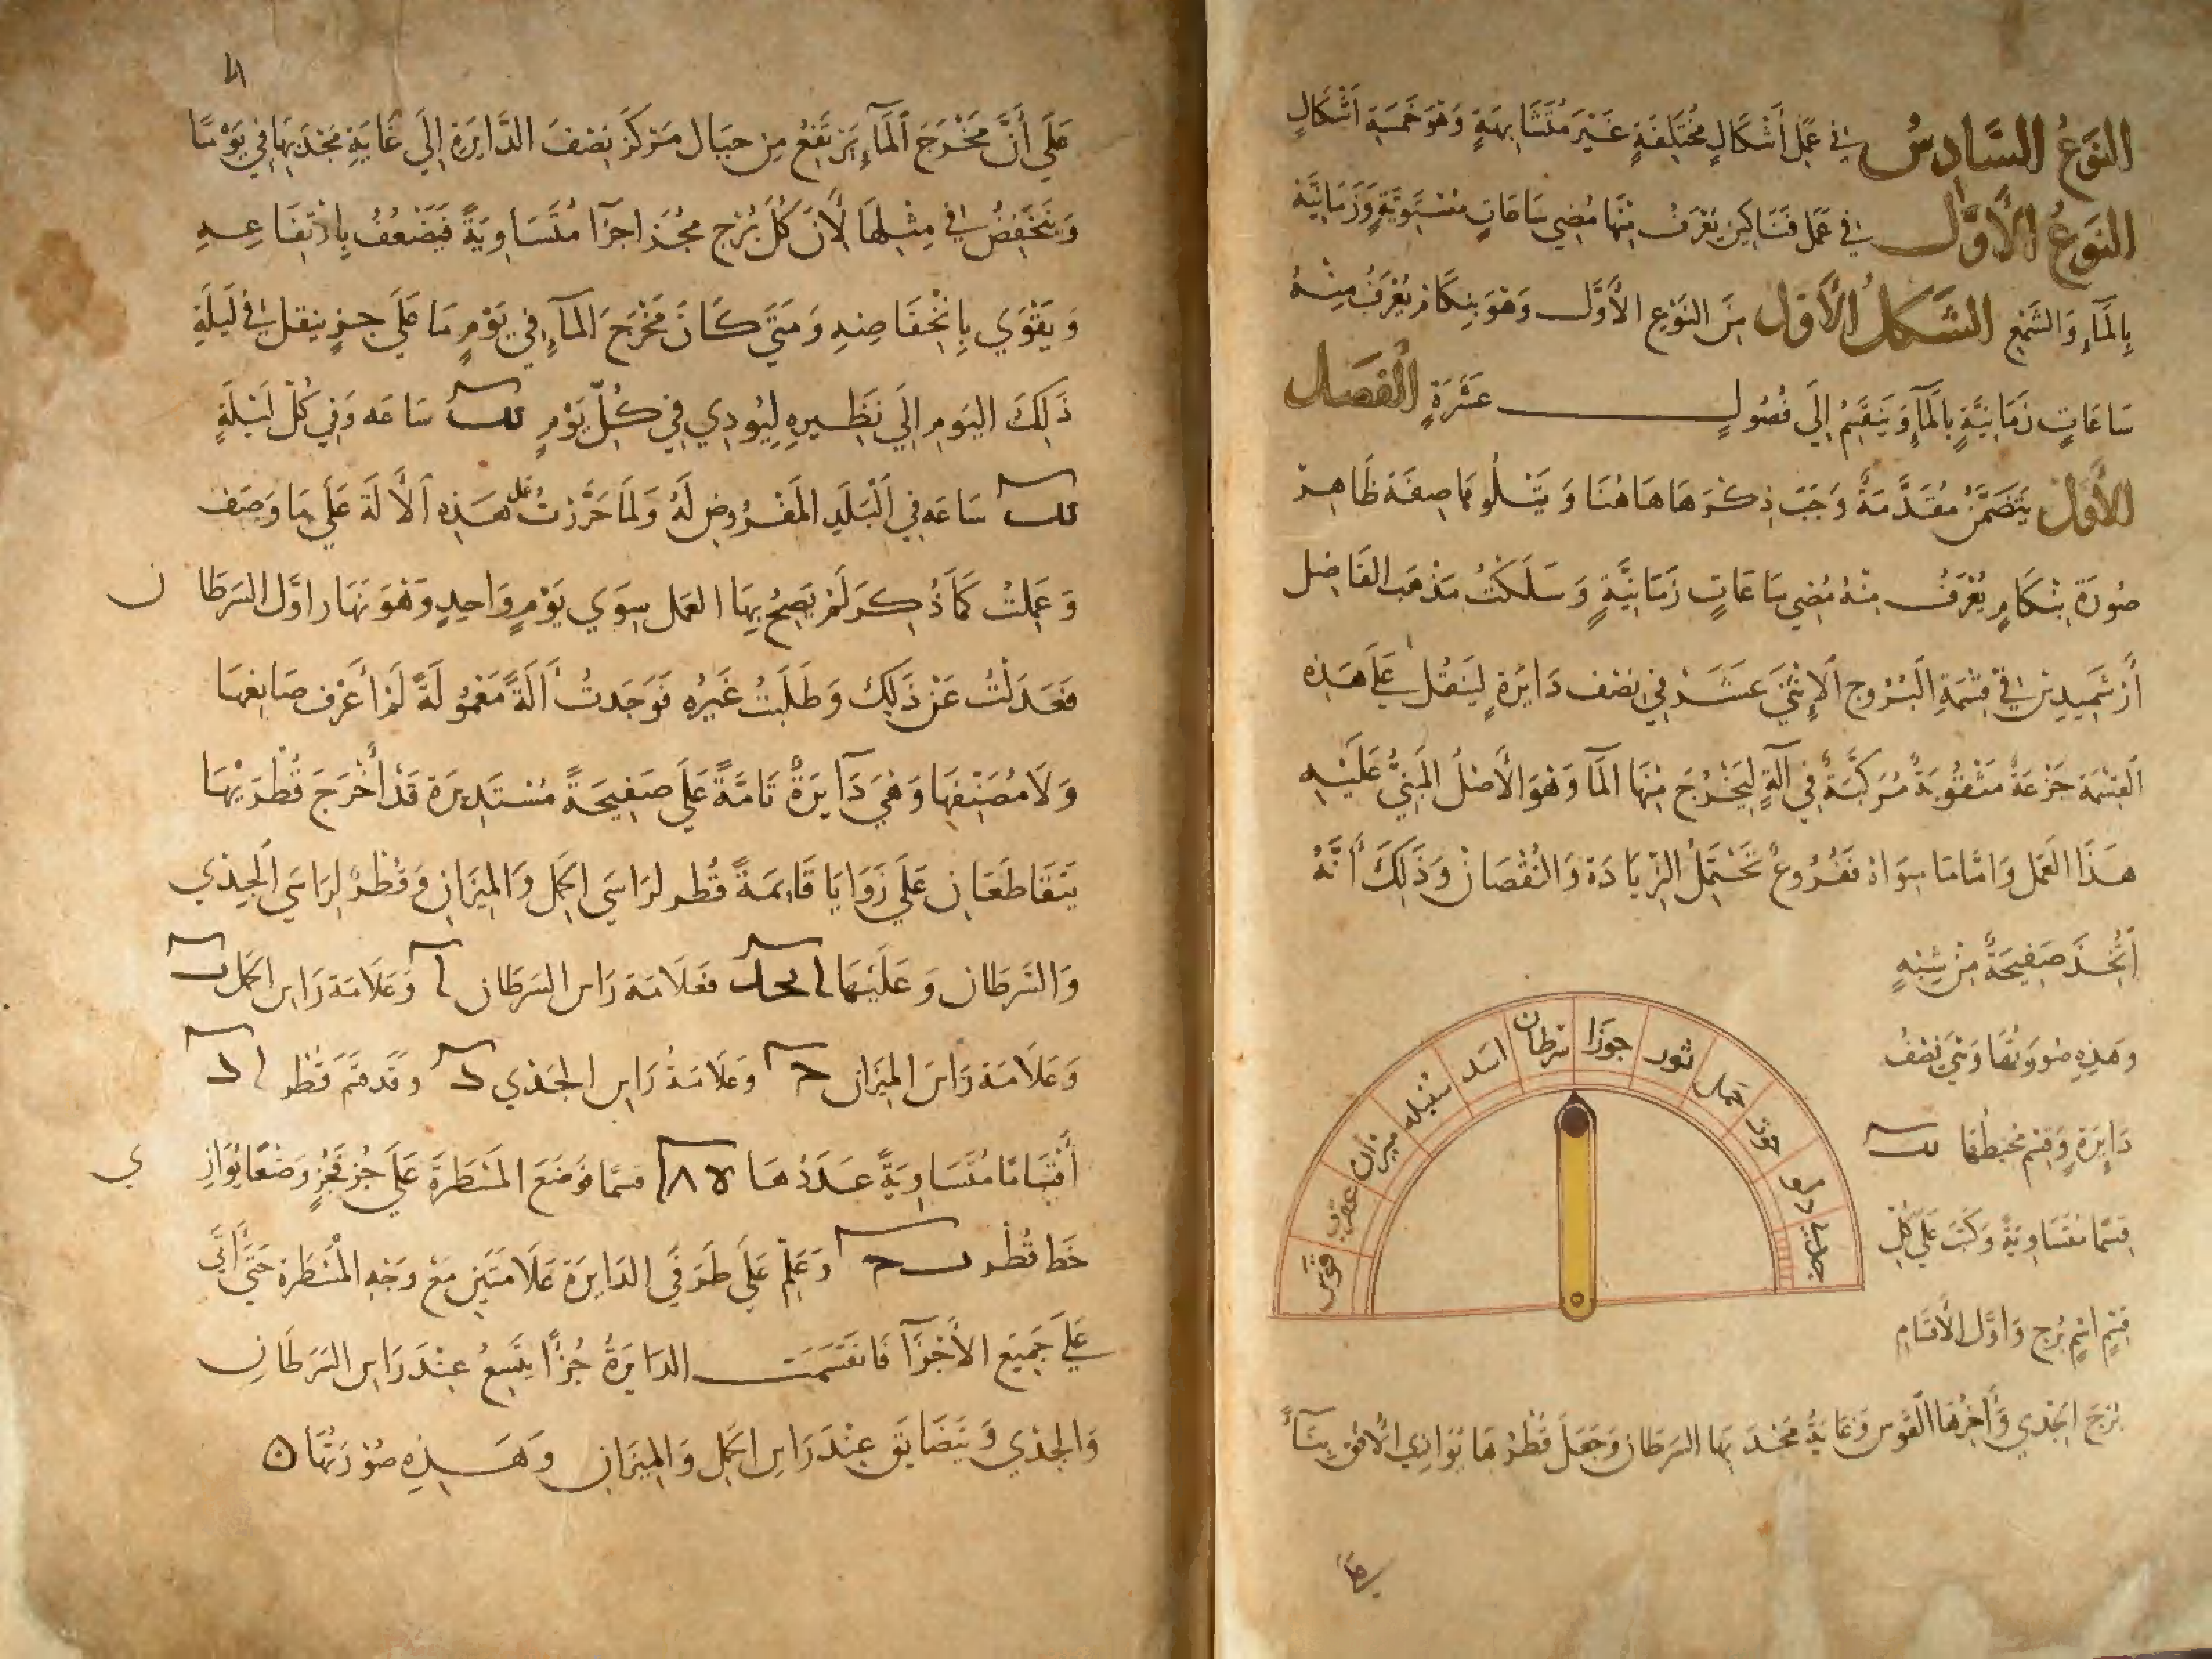 النَّوْعُ السَّادِسُ في عَمَلِ أَشْكَالٍ مُخْتَلِفَةٍ غَيْرَ مُتَشَابِهَةٍ وَهُوَ خَمْسَةِ اَشْكَالٍ
النَّوْعُ الأَوَّل في عَمَل فَنَاكِين يُعْرَف مِنْهَا مُضِي سَاعَاتٍ مُسْتَوِيَةٍ وَزَمَانِيَّة
بِالمَآءِ وَالشَّمْعِ الشَّكلُ الأَوَّل مِنَ النَّوْعِ الأَوَّل وَهْوَ بِنكَام يُعْرَفُ مِنْهُ
سَاعَاتٍ زَمَانِيَّةٍ بِالمَآءِ وَيَنقَسِمُ إِلَى فُصُولٍ عَشَرَةٍ الفَصَل
الأَوَّل يَتَضَمَّنُ مُقَدَّمَةً وَجَبَ ذِكْرَهَا هَاهُنَا وَيَتْلُوهَا صِفَة ظَاهِر
صُورَة بِنْكَامٍ يُعْرَفُ مِنْهُ مُضِي سَاعَاتٍ زَمَانِيَّةٍ وَسَلَكْتُ مَذْهَبَ الفَاضِل
أَرْشَمِيدِس في قِسْمَةِ البُرُوجِ الإِثْنَى عَشَر في نِصْف دَايْرَةٍ لِيَنْقُل عَلَى هَذِهِ
القِسْمَة جَزْعَةٌ مَثْقُوبَةٌ مُرَكَّبَةٌ في آلَةٍ لِيَخْرُجَ مِنْهَا المَآ وَهْوَ الأَصْلُ المَبْنِيُّ عَلَيْهِ
هَذَا العَمَل وَامَّا مَا سِوَاهُ فَفُرُوعٌ تَحْتَمِلُ الزِّيَادَة وَالنُقْصَانْ وَذَلِكَ أَنَّهُ
اَتَّخَذَ صَفِيحَةً مِنْ شِبْهٍ
وهَذِهِ صُورَتهَا وَهْيَ نِصْفُ
دَايِرَةٍ وَقَسَمَ مُحِيطَهَا يب
قِسْمًا مُتَسَاوِيَةً وَكَتَبَ عَلَى كُلِّ
قِسْمٍ اسْمَ بُرْجٍ وَاوَّل الأَقسَامِ
بُرْجَ الجَدْي وَأَخِرُهَا القَوْس وَغَايَةُ مَحْدَبهَا السَرَطَان وَجَعَلَ قُطْرُهَا يُوَازِي الأُفُق بِنَاءً
جدي
دلو
حوت
حمل
ثور
جوزا
سرطان
اسد
سنبله
ميزان
عقرب
قوس
عَلَى أَنَّ مَخْرَجَ المَآءِ يَرْتَفِعُ مِن حِيَال مَرْكَزَ نِصْفَ الدَّايِرَةِ إِلَى غَايَةِ مَحْدَبِهَا في يَوْمٍ مَّا
وَيَنْخَفِضُ في مِثْلِهَا لأَنَّ كُلَّ بُرْجٍ مُجَزَأ اجزَآ مُتَسَاوِيَةً فَيَضْعُفُ بِارْتِفَاعِهِ
وَيَقْوَي بِانْخِفَاضِهِ وَمَتَى كَانَ مَخْرَجَ المَآءِ في يَوْمٍ مَا عَلَى جزءٍ ينقل في لَيْلَةِ
ذَلِكَ اليَومِ إِلَى نَظِيرِهِ لِيُودِي في كُلِّ يَوْمٍ يب سَاعَه وَفي كُلِّ لَيْلَةٍ
يب سَاعَه في البَلَدِ المَفْرُوضِ لَهُ وَلمَا حَرَّرْتُ عَمَل هَذِهِ الآلَة عَلَى مَا وَصَف
وَعَمِلتُ كَمَا ذُكِرَ لَمْ يَصِحُ بِهَا العَمَل سِوَي يَوْمٍ وَاحِدٍ وَهْوَ نَهَار اوَّل السَرَطَان
فَعَدَلْتُ عَنْ ذَلِكَ وَطَلَبْتُ غَيْرَه فَوَجَدتُ أَلَةً مَعْمُولَةً لَمْ أَعْرِف صَانِعَهَا
وَلَا مُصَنِّفَهَا وَهْيَ دَآيِرَةٌ تَامَّةً عَلَى صَفِيحَةً مُسْتَدِيرَة قَدْ أَخْرَجَ قُطْرَيْهَا
يَتَقَاطَعَانِ عَلَى زَوَايَا قَايِمَةً قُطر لرَاسَي الحَمَل وَالمِيزَان وَقُطْرٌ لِرَاسَي الجَدْي
وَالسَّرَطَان وَعَلَيْهَا ا ب ج د فَعَلَامَة رَاس السَرَطَان ا وَعَلَامَة رَاس الحَمَل ب
وَعَلَامَة رَاسَ المِيزَان ج وَعَلَامَةُ رَاس الجَدْي د وقَدْ قسَّمَ قُطر ا د
أَقْسَامًا مُتَسَاوِيَةً عَدَدُهَا قسمًا فوَضَعَ المَسْطَرَةَ عَلَى جُزْءٍ فَجُزْءٍ وَضْعًا يُوَازِي
خَط قُطْر ب ج وَعَلَّمَ عَلَى طَرَفَي الدَايِرَة عَلَامَتَيْنِ مَعْ وَجْهِ المَسْطَرَة حَتَّى أَتَى
عَلَى جَمِيعَ الأَجْزَآ فَانقَسَمَت الدَايِرَةُ جُزْأً يتَّسِعُ عِنْدَ رَاس السَرَطَانِ
وَالجَدْي وَيَتَضَايَق عِنْدَ رَاس الحَمَل وَالمِيزَان وَهَذِهِ صُوْرَتُهَا ه